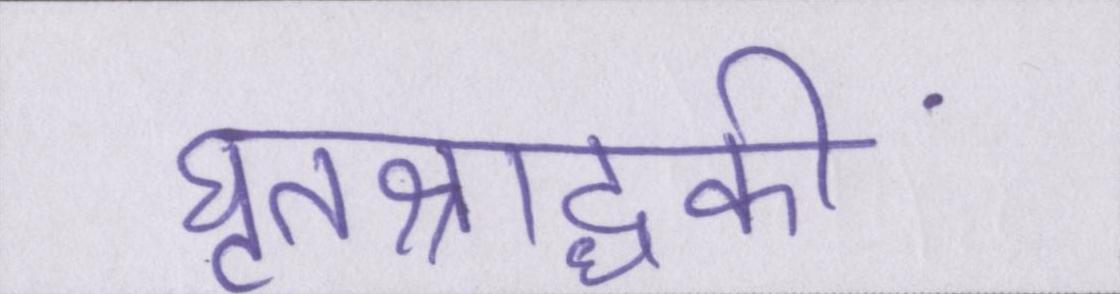 घृतश्राद्धकीं